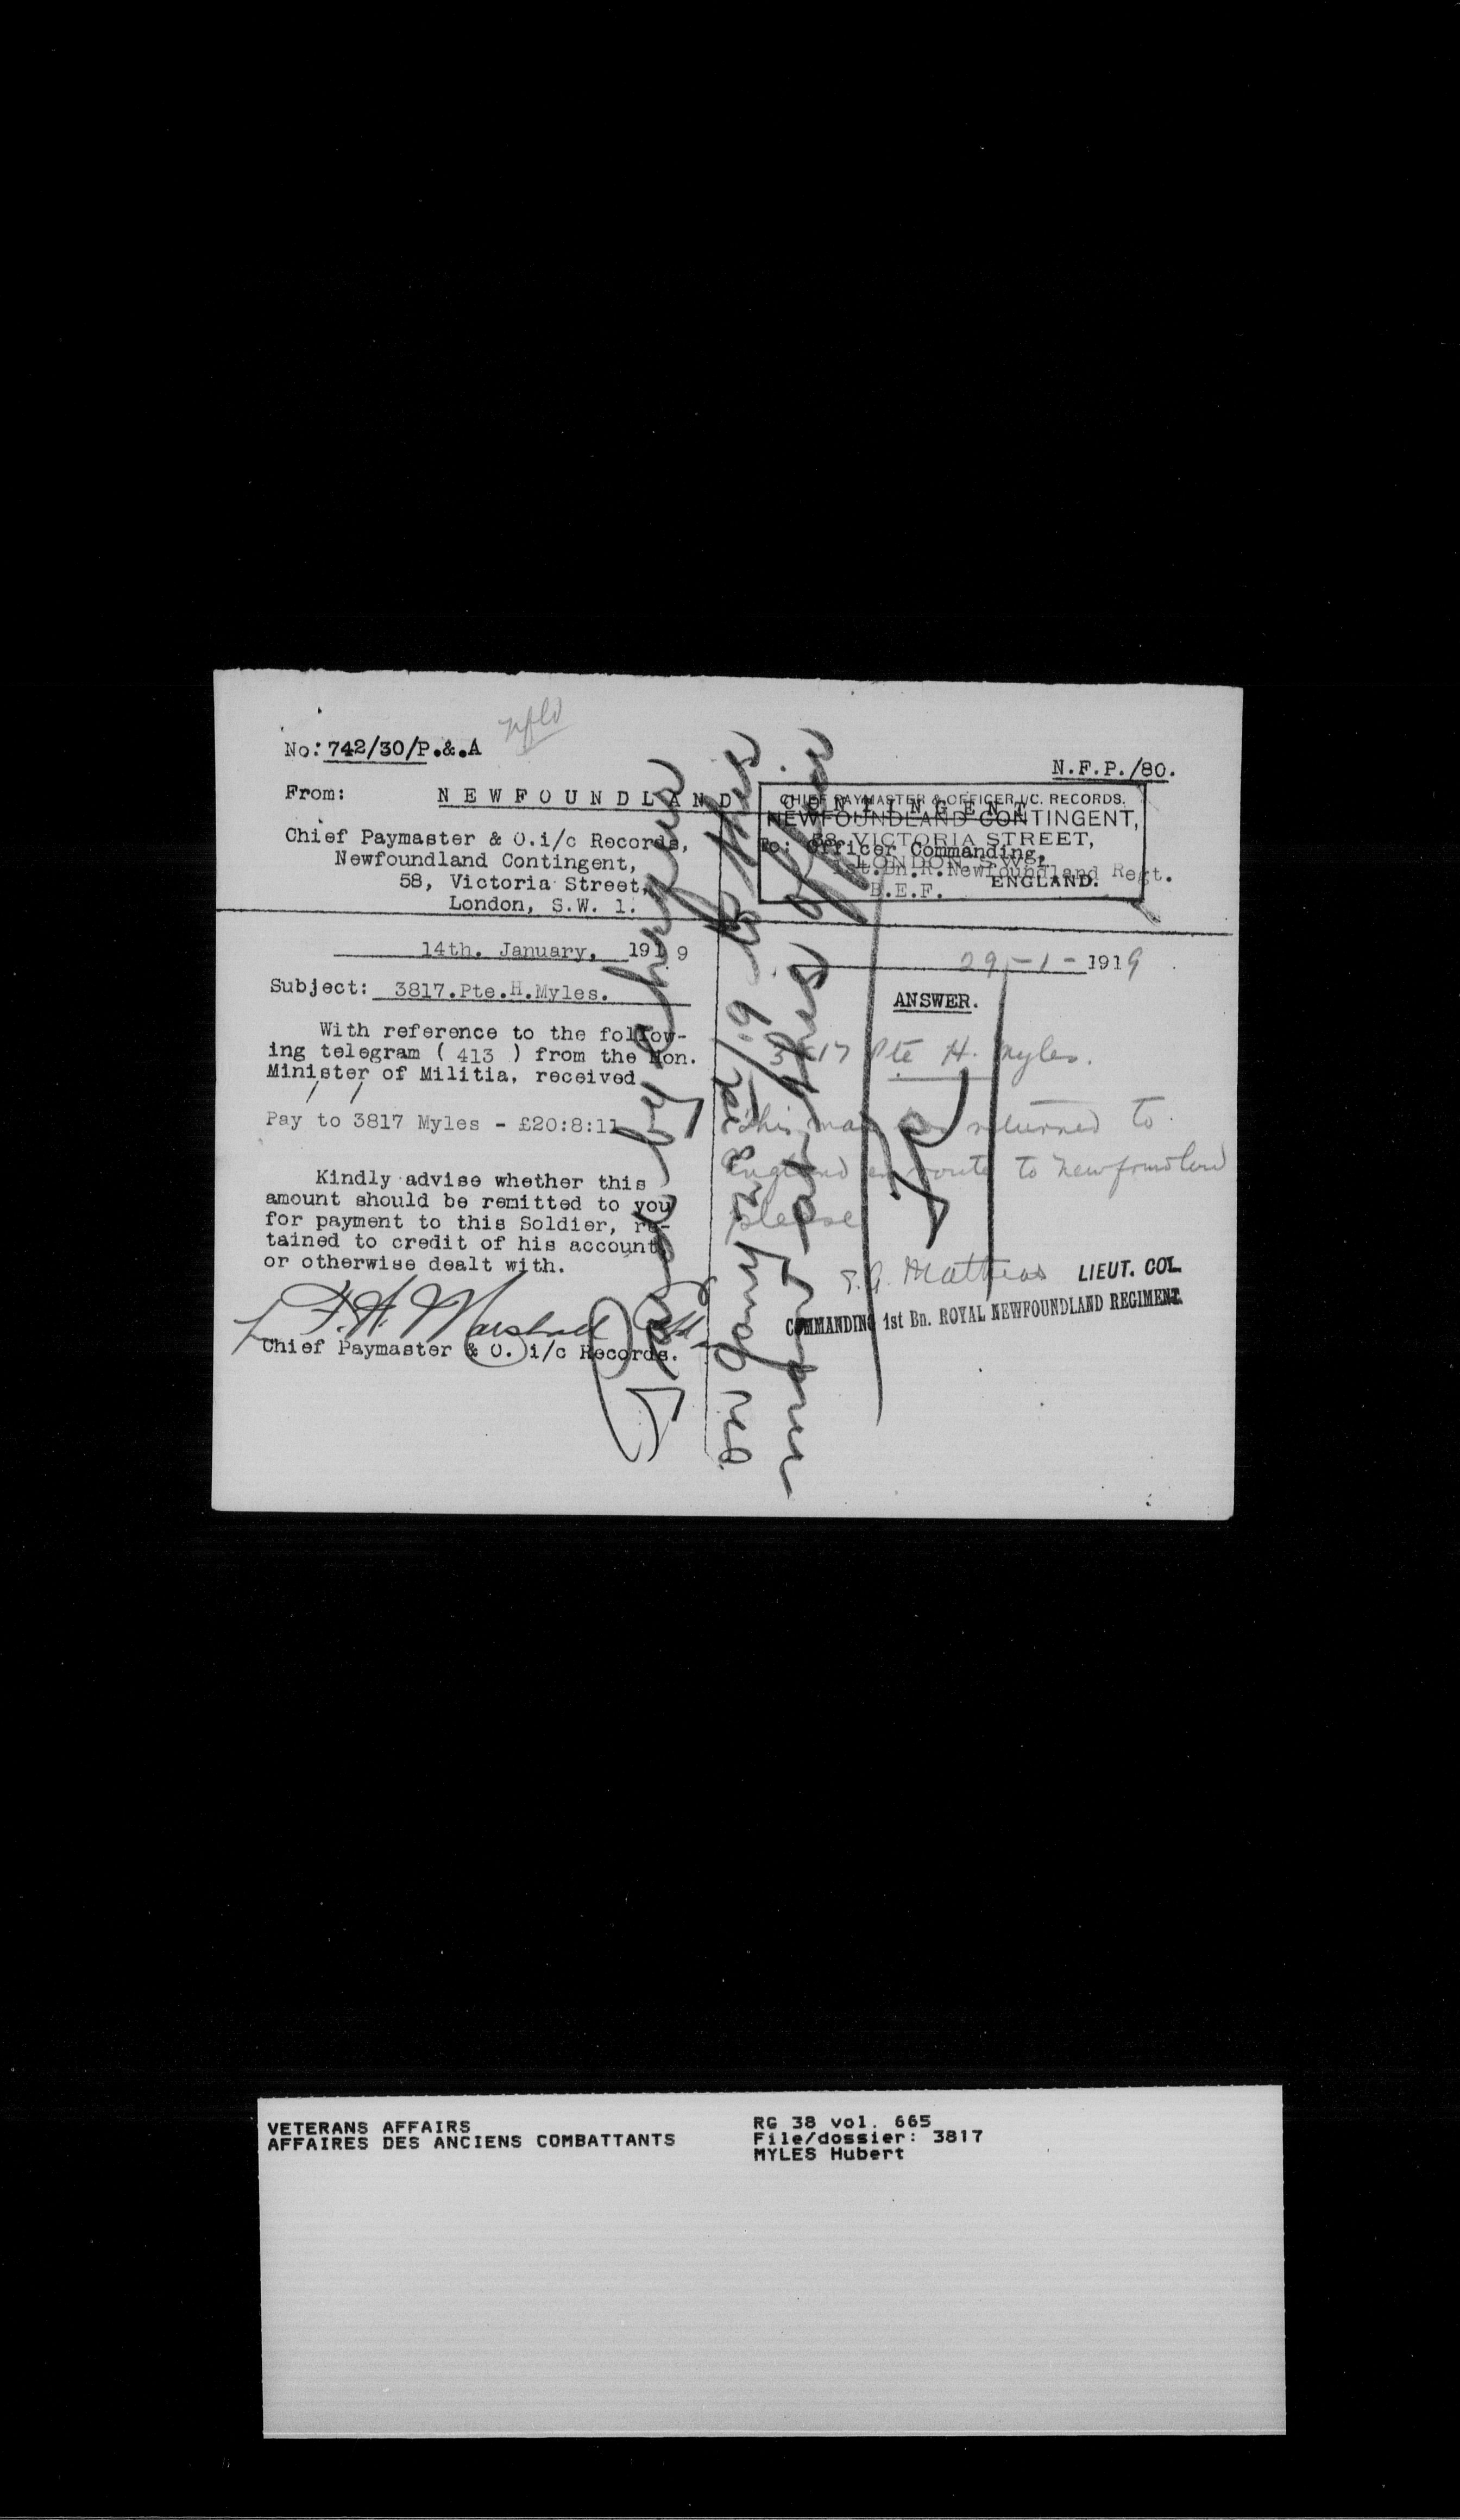 Nfld
No: 742/30/P.&.A
N.F.P./80.
From:
NEWFOUNDLAND CONTINGENT
Chief Paymaster & O.i/c Records,
Newfoundland Contingent,
58, Victoria Street,
London, S.W. 1.
CHIEF PAYMASTER & OFFICER I/C. RECORDS.
NEWFOUNDLAND CONTINGENT,
58, VICTORIA STREET,
LONDON, S.W.1.
ENGLAND.
To: Officer Commanding,
1st.Bn.R.Newfoundland Regt.
B.E.F.
14th. January, 1919
Subject: 3817.Pte.H.Myles.
With reference to the follow-
ing telegram ( 413 ) from the Hon.
Minister of Militia, received
Pay to 3817 Myles - £20:8:11
Kindly advise whether this
amount should be remitted to you
for payment to this Soldier, re-
tained to credit of his account,
or otherwise dealt with.
F. H. Marshall
Chief Paymaster & O. i/c Records.
29-1-1919
ANSWER.
3817 Pte H. Myles.
This man has returned to
England en route to Newfoundland
please
LIEUT. COL
COMMANDING 1st Bn. ROYAL NEWFOUNDLAND REGIMENT.
Paid by cheque
on Jany 28th/19 to this
man at this office
VETERANS AFFAIRS
AFFAIRES DES ANCIENS COMBATTANTS
RG 38 vol. 665
File/dossier: 3817
MYLES Hubert